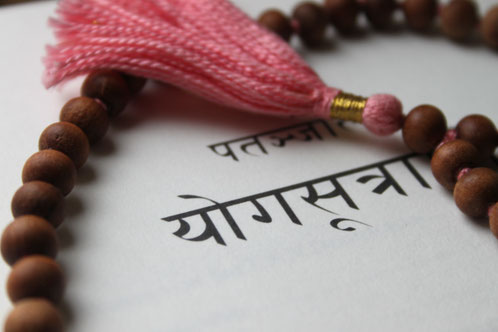 पतञ्ज
योगसूत्रा